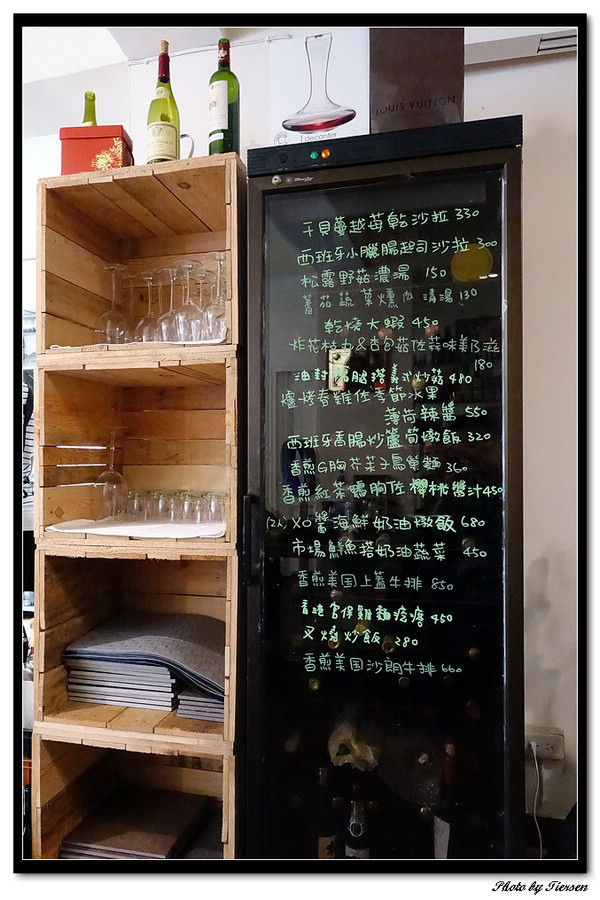 LOUIS VUITTON
decanter
干貝蔓越莓乾沙拉 330
西班牙小臘腸起司沙拉 300
松露野菇濃湯 150
蕃茄蔬菜燻肉清湯 130
乾燒大蝦 450
炸花枝丸&杏包菇佐蒜味美乃滋
180
油封鴨腿搭義式炒菇 480
爐烤春雞佐季節水果
薄荷辣醬 550
西班牙香腸炒蘆筍燉飯 320
香煎G胸芥茉子鳥巢麵 360
香煎紅茶鴨胸佐櫻桃醬汁 450
(2人) XO醬海鮮奶油燉飯 680
市場鮮魚搭奶油蔬菜 450
香煎美国上蓋牛排 850
香港官保雞麵疙瘩 450
叉燒炒飯 280
香煎美国沙朗牛排 660
Photo by Tiersen